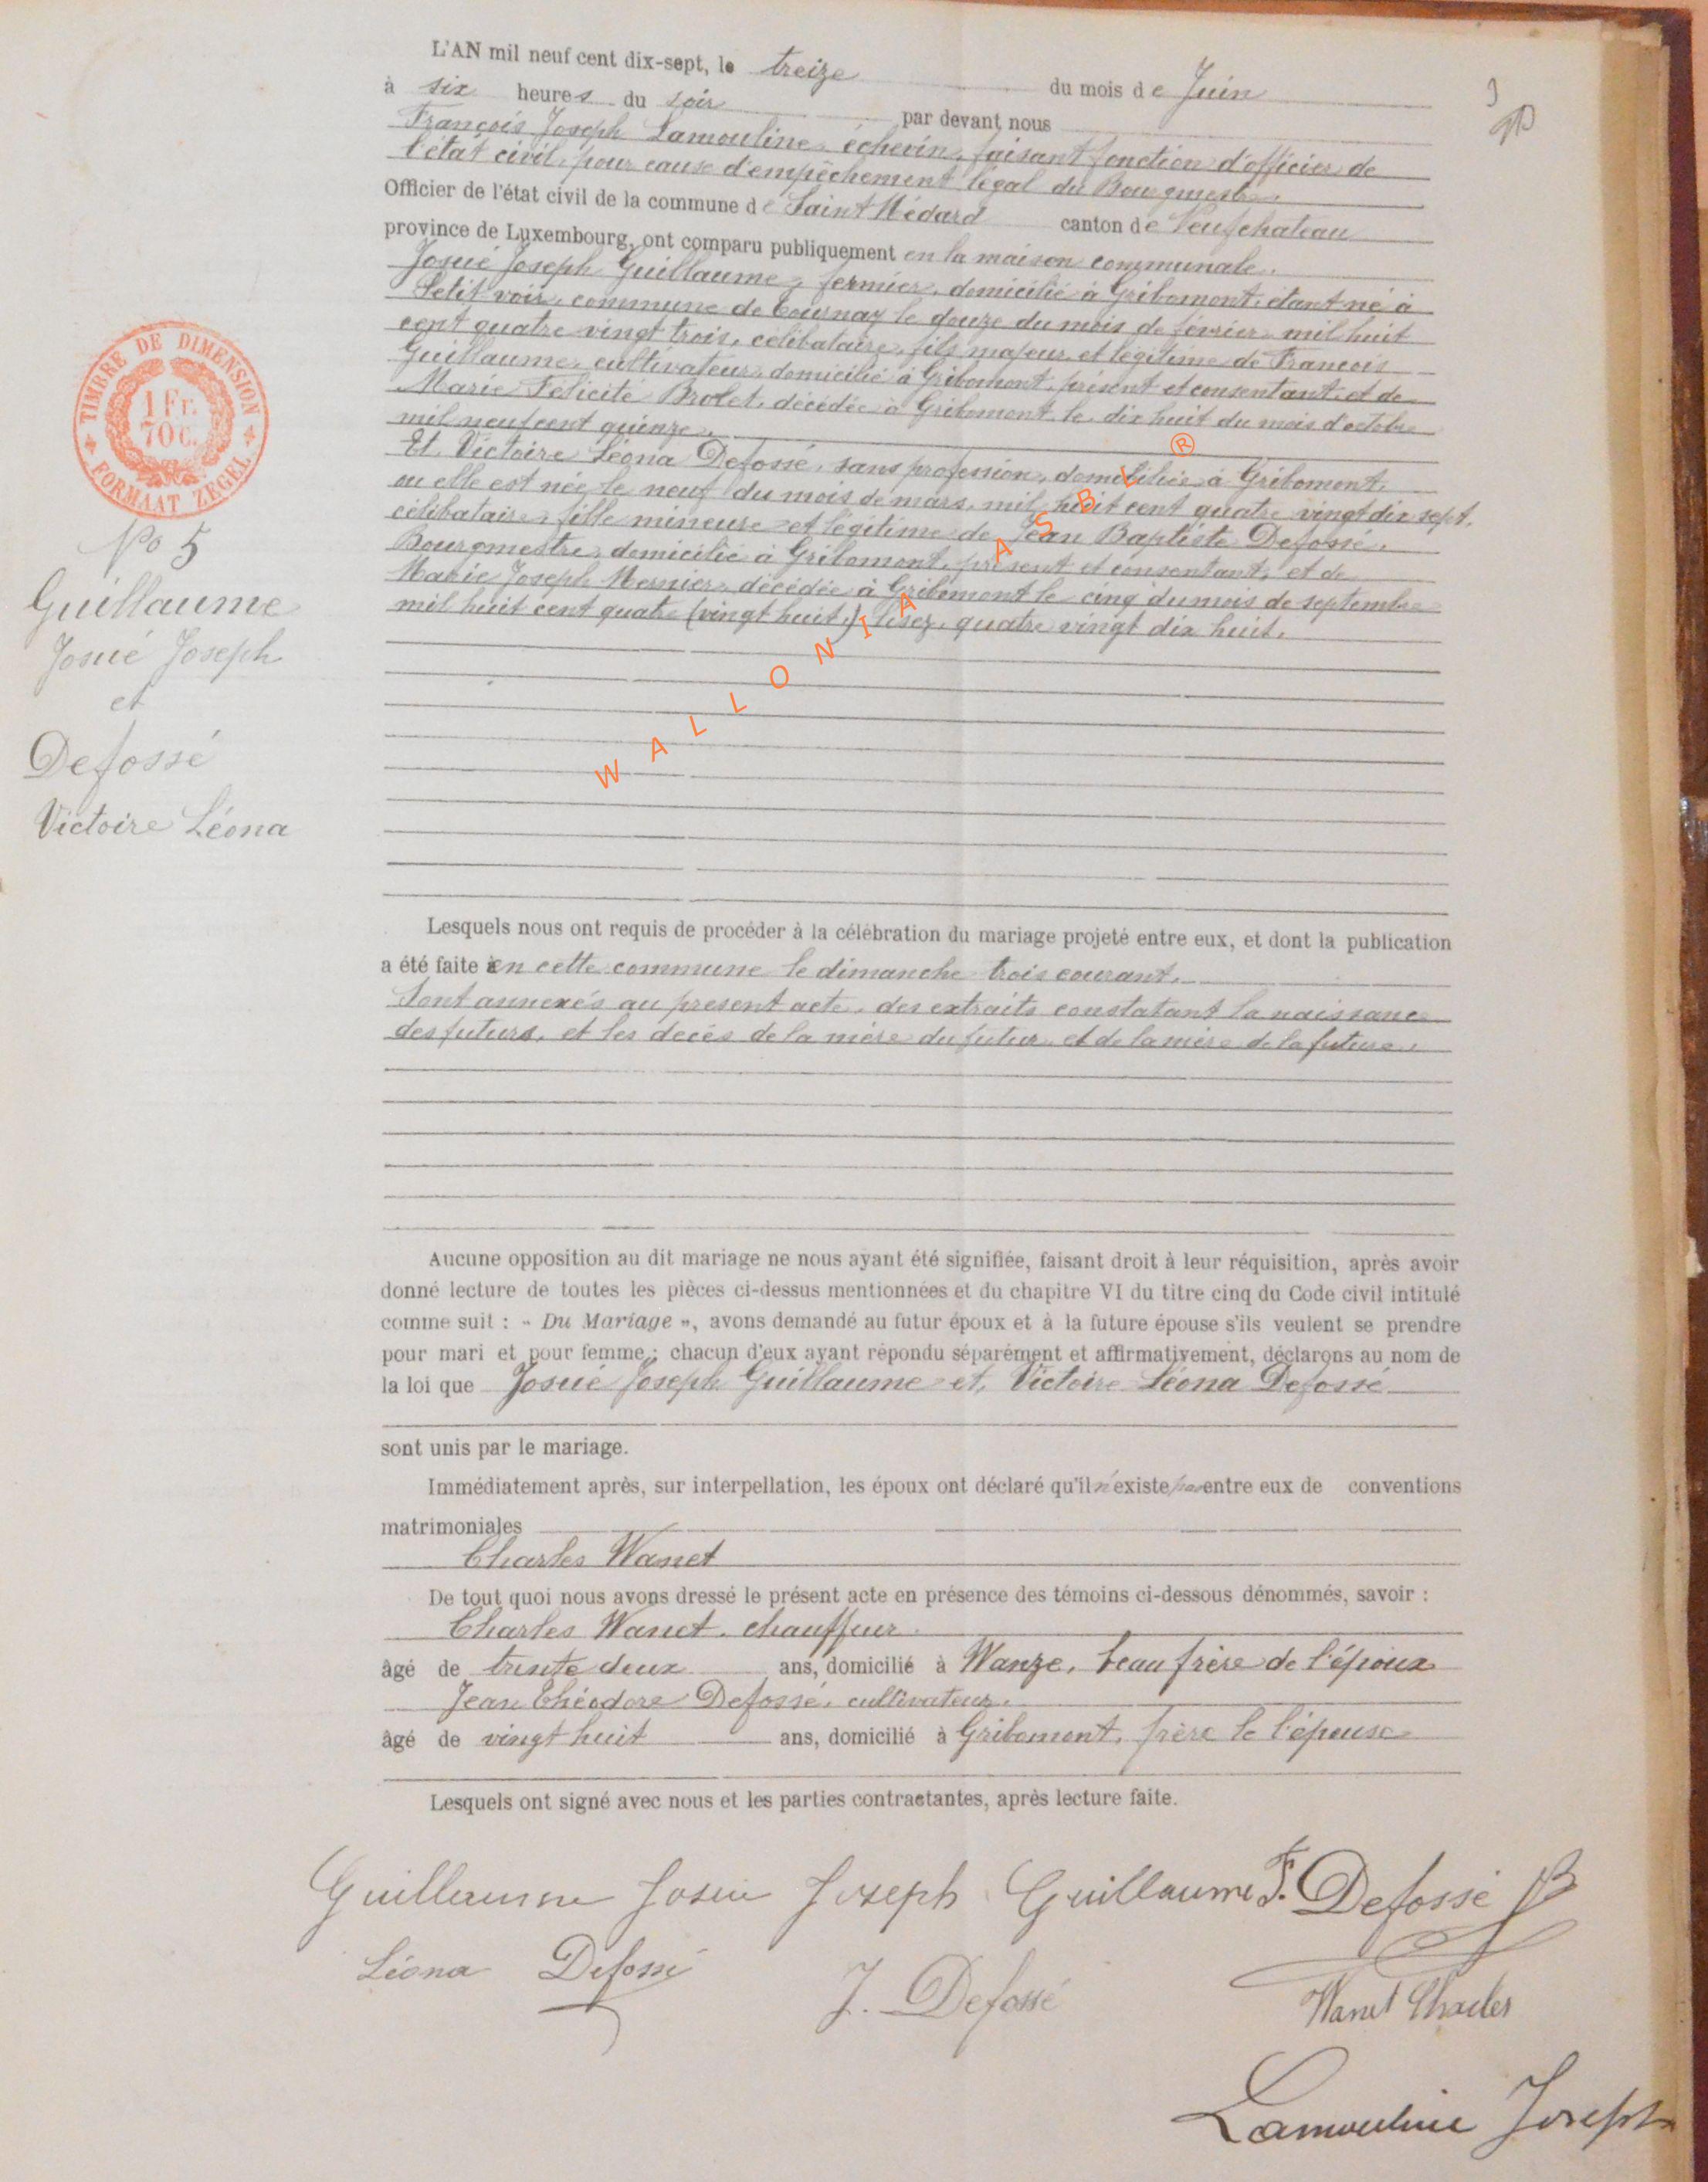 L'AN mil neuf cent dix-sept, le treize du mois de Juin
à six heures du soir par devant nous
François Joseph Lamouline, échevin, faisant fonction d'officier de
l'état civil, pour cause d'empêchement légal du Bourgmestre,
Officier de l'état civil de la commune de Saint Médard canton de Neufchateau
province de Luxembourg, ont comparu publiquement en la maison communale.
Josué Joseph Guillaume, fermier, domicilié à Gribomont, étant né à
Petitvoir, commune de Tournay le douze du mois de février mil huit
cent quatre vingt trois, célibataire, fils majeur et légitime de François
Guillaume, cultivateur, domicilié à Gribomont, présent et consentant, et de
Marie Félicité Brolet, décédée à Gribomont le dix huit du mois d'octobre
mil neuf cent quinze.
Et Victoire Léona Defossé, sans profession, domiciliée à Gribomont,
ou elle est née le neuf du mois de mars, mil huit cent quatre vingt dix sept,
célibataire, fille mineure et légitime de Jean Baptiste Defossé,
Bourgmestre, domicilié à Gribomont, présent et consentant, et de
Marie Joseph Mernier, décédée à Gribomont le cinq du mois de septembre
mil huit cent quatre (vingt huit,) lisez, quatre vingt dix huit.
TIMBRE DE DIMENSION
1 Fr.
70 C.
FORMAAT ZEGEL
No 5
Guillaume
Josué Joseph
et
Defossé
Victoire Léona
WALLONIA ASBL ®
Lesquels nous ont requis de procéder à la célébration du mariage projeté entre eux, et dont la publication
a été faite en cette commune le dimanche trois courant.
Sont annexés au present acte, des extraits constatant la naissance
des futurs, et les decès de la mère du futur et de la mère de la future.
Aucune opposition au dit mariage ne nous ayant été signifiée, faisant droit à leur réquisition, après avoir
donné lecture de toutes les pièces ci-dessus mentionnées et du chapitre VI du titre cinq du Code civil intitulé
comme suit : « Du Mariage », avons demandé au futur époux et à la future épouse s'ils veulent se prendre
pour mari et pour femme ; chacun d'eux ayant répondu séparément et affirmativement, déclarons au nom de
la loi que Josué Joseph Guillaume et, Victoire Léona Defossé
sont unis par le mariage.
Immédiatement après, sur interpellation, les époux ont déclaré qu'il n'existe pas entre eux de conventions
matrimoniales
Charles Wanet
De tout quoi nous avons dressé le présent acte en présence des témoins ci-dessous dénommés, savoir :
Charles Wanet, chauffeur
âgé de trente deux ans, domicilié à Wanze, beau frère de l'époux
Jean Théodore Defossé, cultivateur,
âgé de vingt huit ans, domicilié à Gribomont, frère le l'épouse
Lesquels ont signé avec nous et les parties contractantes, après lecture faite.
Guillaume Josué Joseph Guillaume F. Defossé JB
Léona Defossé J. Defossé Wanet Charles
Lamouline Joseph